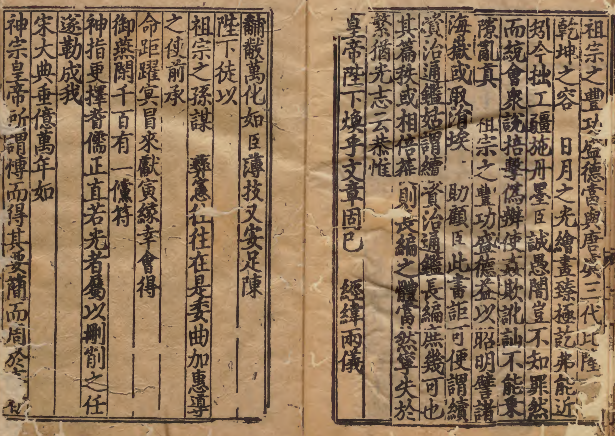 祖宗之豐功盛德當與唐虞三代比隆
乾坤之容　日月之光繪畫臻極訖弗能近
矧今拙工彊施丹墨臣誠愚闇豈不知罪然
而統會衆說掊擊偽辨使姦欺訛訕不能乗
隙亂真　祖宗之豐功盛德益以昭明譬諸
海嶽或取涓埃　助顧臣此書詎可便謂續
資治通鑑姑謂續　資治通鑑長編庶幾可也
其篇秩或相倍蓰　則長編之體當然寧失於
繁猶光志云恭惟
皇帝陛下煥乎文章固已　經緯兩儀
黼黻萬化如臣薄技又安足陳
陛下徒以
祖宗之孫謀　彝憲往往在是委曲加惠導
之使前承
命距躍冥冒來獻夤緣幸會得
御燕閒千百有一儻符
神指更擇耆儒正直若光者屬以刪削之任
遂勒成我
宋大典垂億萬年如
神宗皇帝所謂博而得其要簡而周於